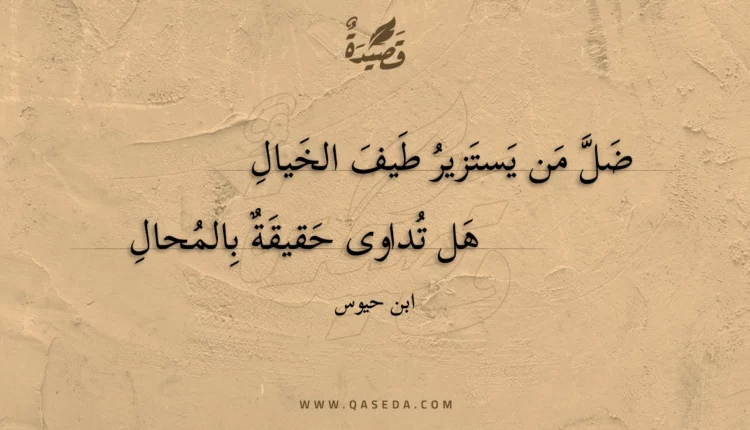 قَصِيدَةٌ
ضَلَّ مَن يَستَزيرُ طَيفَ الخَيالِ
هَل تُداوى حَقيقَةٌ بِالمُحالِ
ابن حيوس
WWW.QASEDA.COM